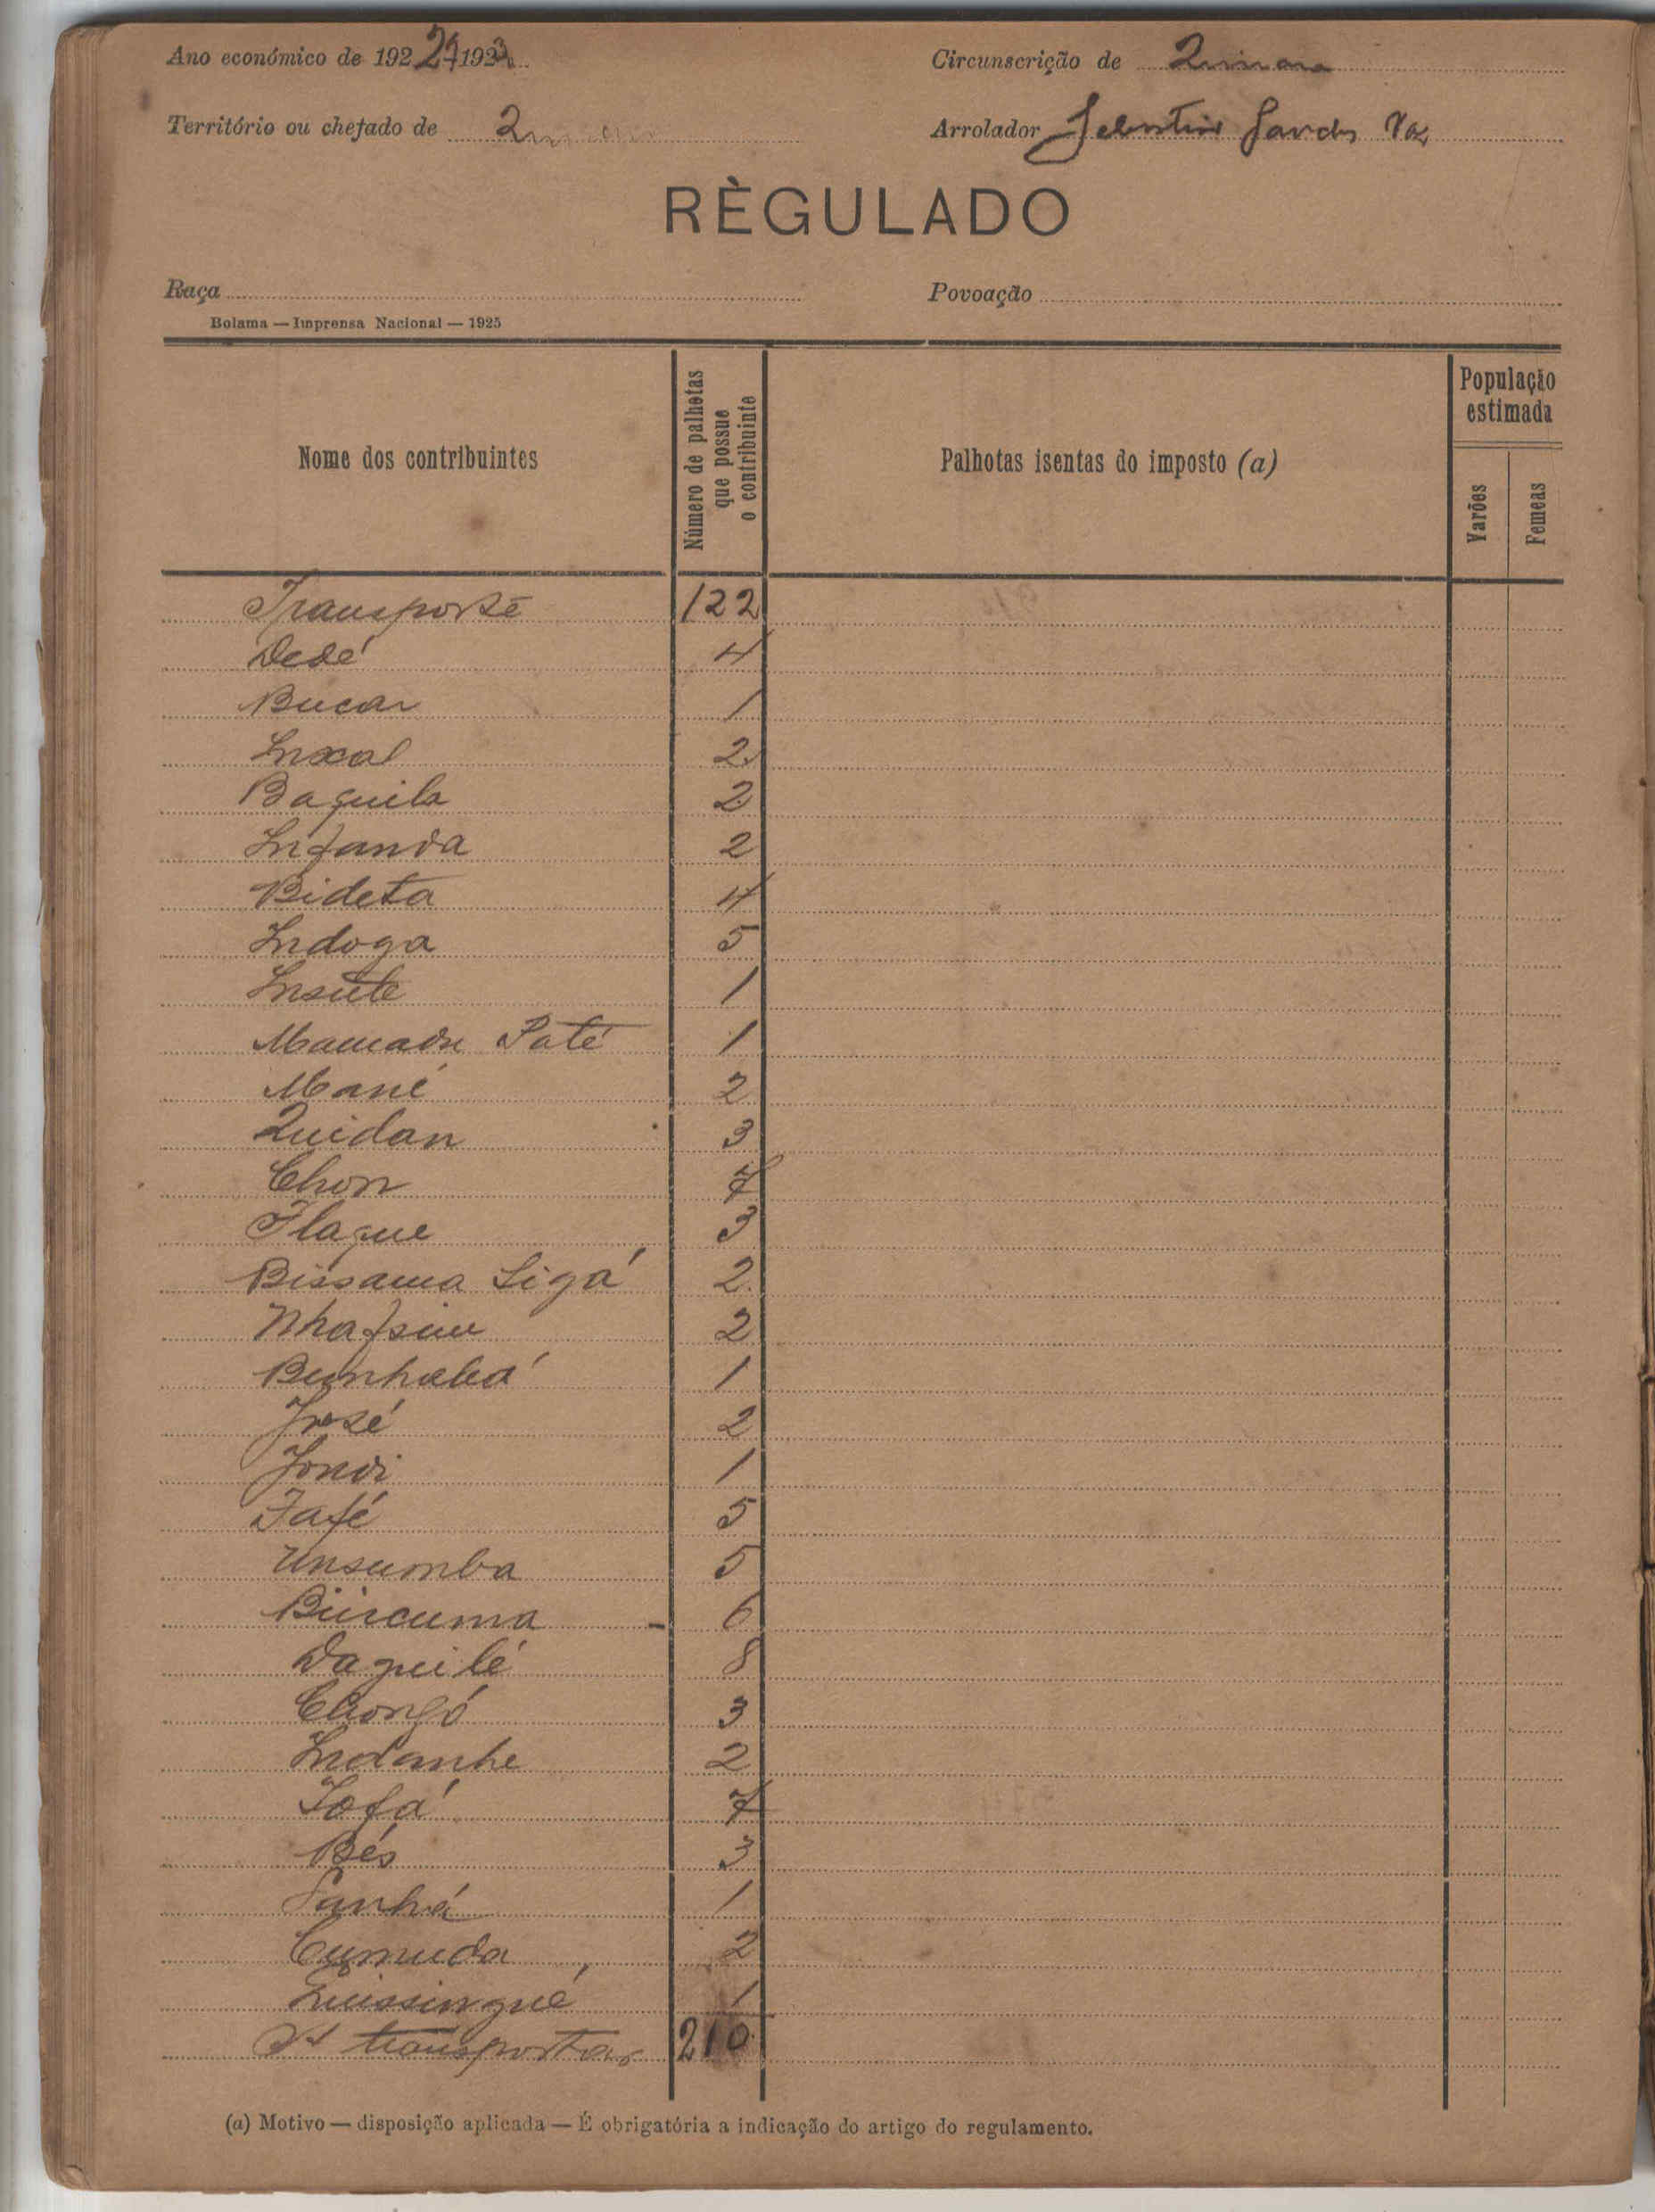 Ano económico de 192 /192
Circunscrição de Quinara
Território ou chefado de Quinara
Arrolador Vaz
RÈGULADO
Raça
Povoação
Bolama — Imprensa Nacional — 1925
Nome dos contribuintes
Número de palhotas que possue o contribuinte
Palhotas isentas do imposto (a)
População estimada
Varões
Femeas
Transporte 122
Dedé 4
Bucar 1
Inxal 2
Baguila 2
Infanda 2
Bideta 4
Indoga 5
Insute 1
Mamadu Paté 1
Mané 2
Quidan 3
Chon 7
Flaque 3
Bissama Sigá 2
2
1
José 2
Jondi 1
Fafé 5
Unsumba 5
Buicuma 6
Daguilé 8
Chongó 3
Indanhe 2
Sofá 7
Bés 3
Sanhá 1
Cumuda 2
Quissingué 1
A transportar 210
(a) Motivo — disposição aplicada — É obrigatória a indicação do artigo do regulamento.